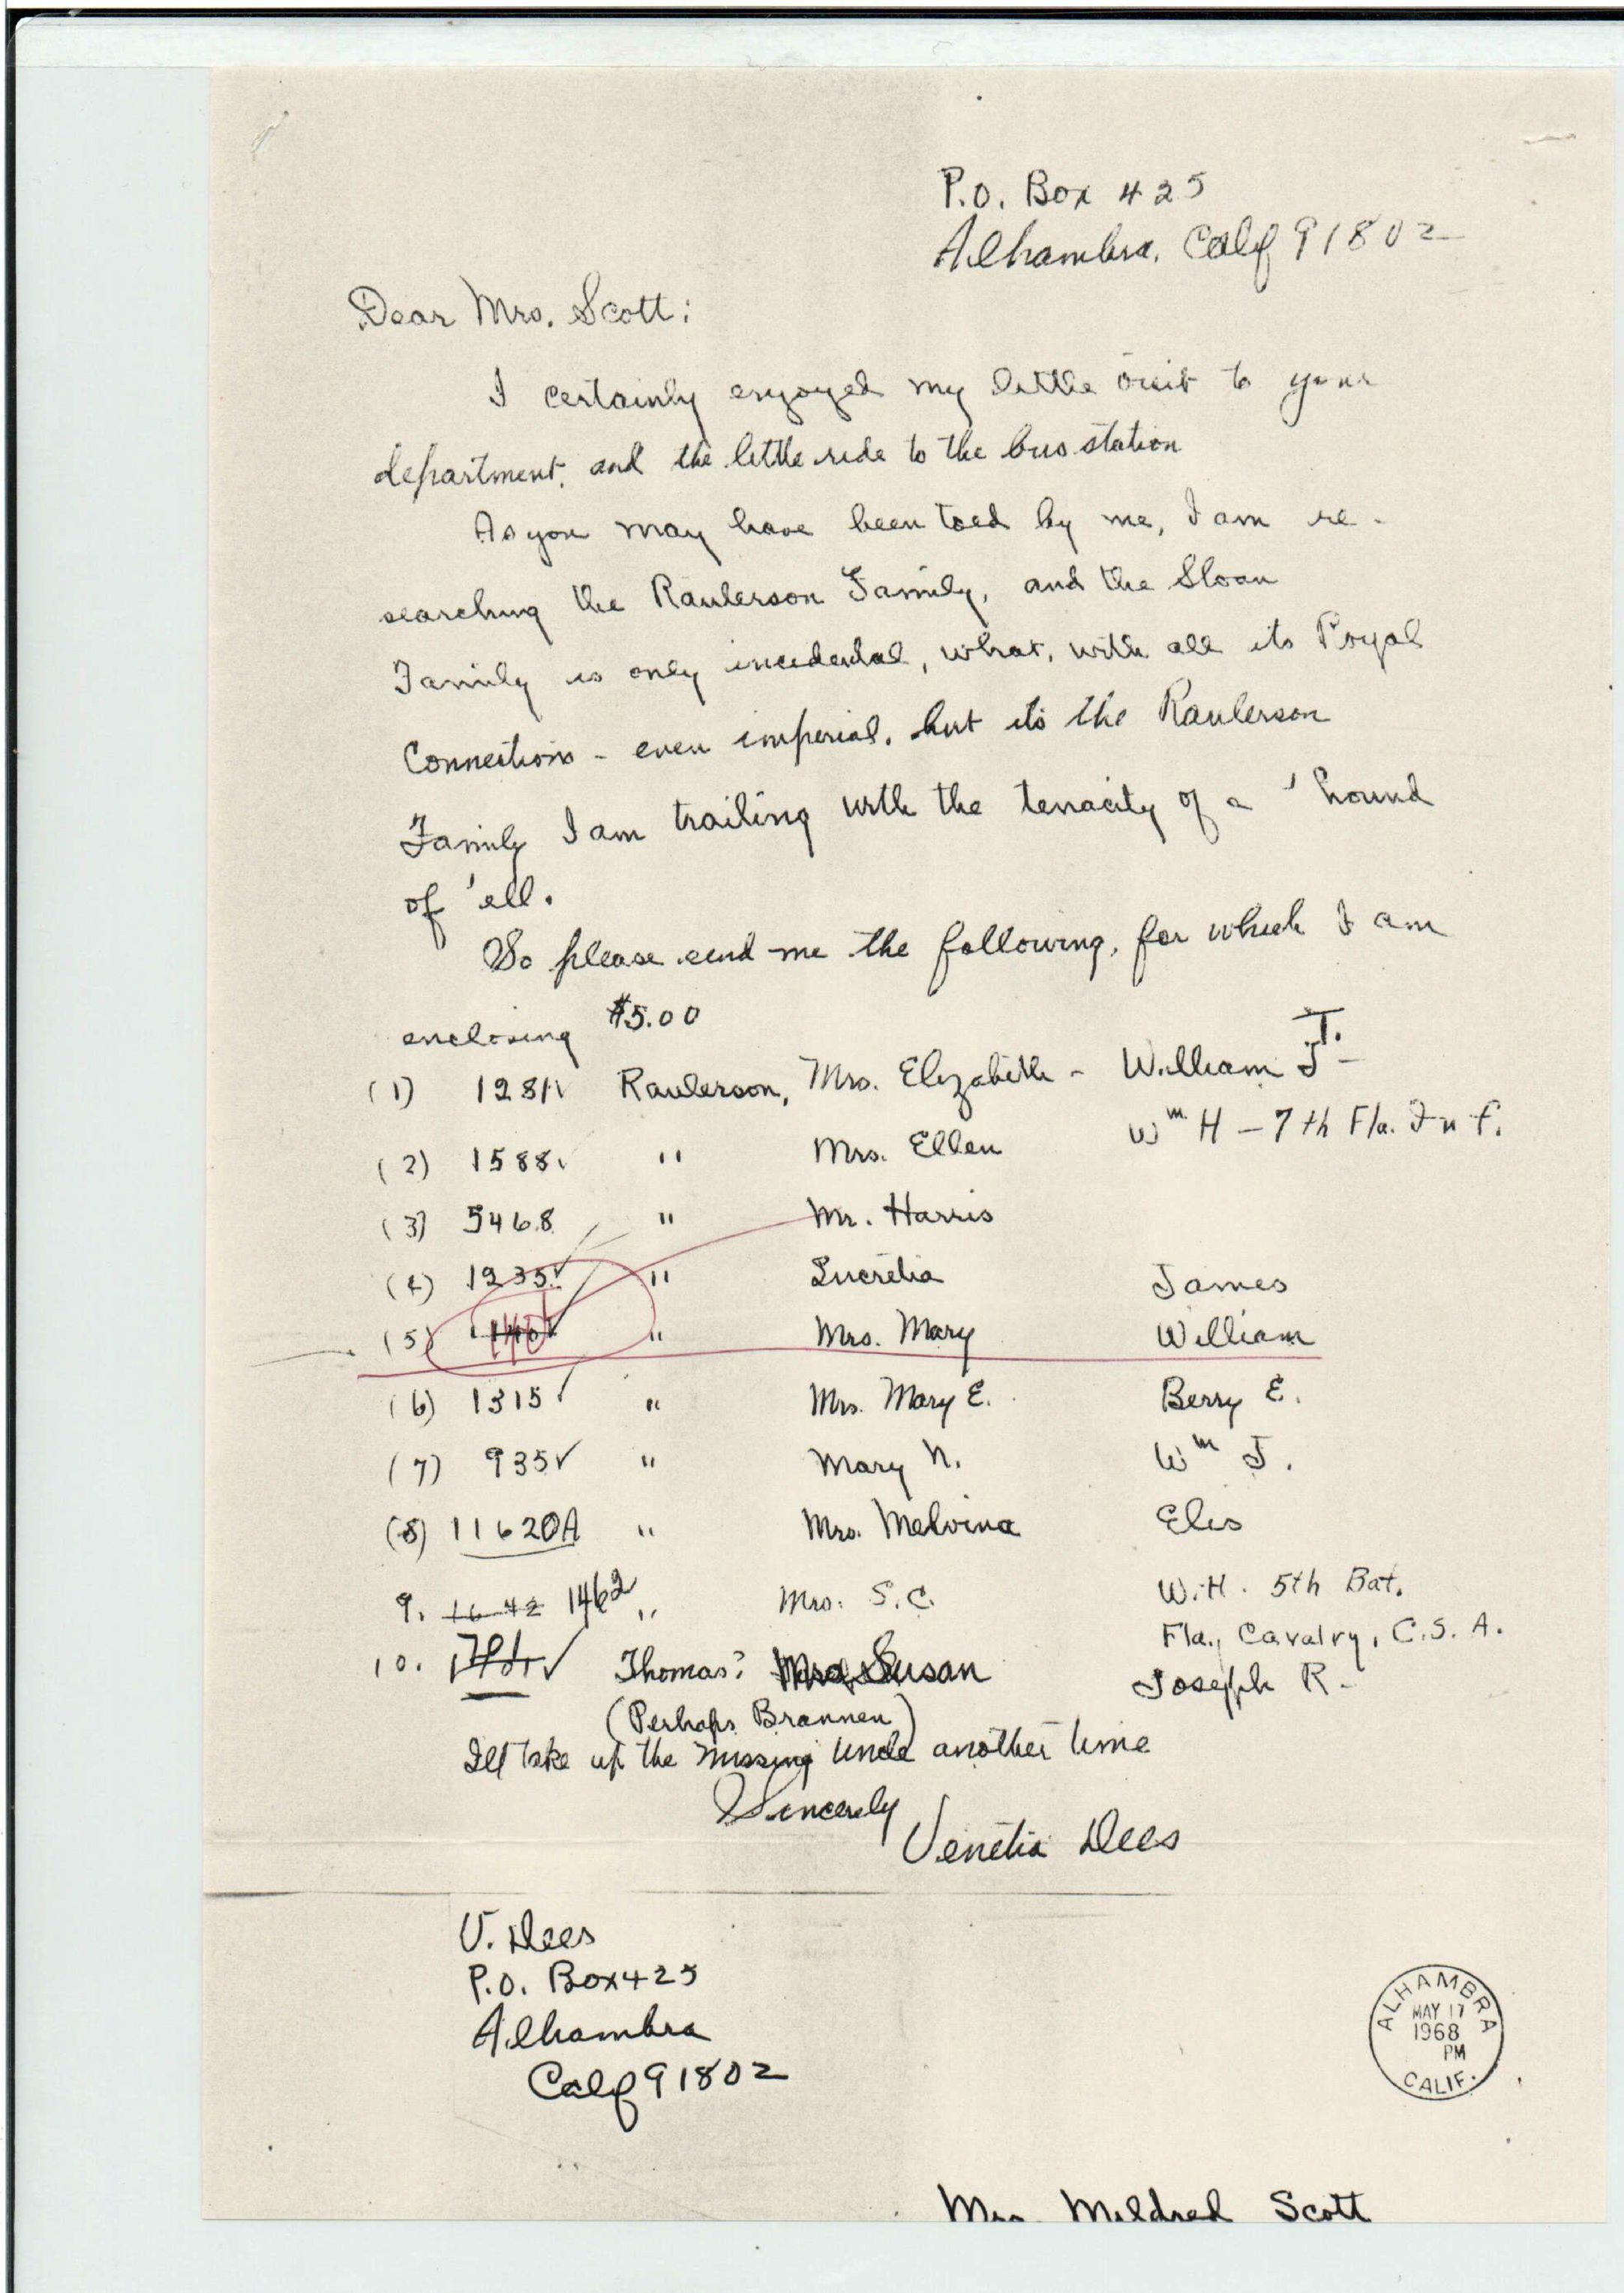 P.O. Box 425
Alhambra, Calif 91802
Dear Mrs. Scott:
I certainly enjoyed my little visit to your
department, and the little ride to the bus station
As you may have been toed by me, I am re-
searching the Raulerson Family, and the Sloan
Family is only incidental, what, with all its Royal
Connections - even imperial, but its the Raulerson
Family I am trailing with the tenacity of a 'hound
of 'ell.
So please send me the following, for which I am
enclosing $5.00
(1) 1281✓ Raulerson, Mrs. Elizabeth - William J- T.
(2) 1588✓ " Mrs. Ellen Wm H - 7th Fla. Inf.
(3) 5468 " Mr. Harris
(4) 1235✓ " Lucretia James
(5) " Mrs. Mary William
(6) 1315✓ " Mrs. Mary E. Berry E.
(7) 935✓ " Mary N. Wm J.
(8) 11620A " Mrs. Melvina Elis
9. 1642 1462 " Mrs. S.C. W.H. 5th Bat.
Fla., Cavalry, C.S.A.
10. Thomas? Susan Joseph R-
(Perhaps Brannen)
I'll take up the missing Uncle another time
Sincerely
Venetia Dees
V. Dees
P.O. Box 425
Alhambra
Calif 91802
ALHAMBRA
MAY 17
1968
PM
CALIF.
Mrs. Mildred Scott